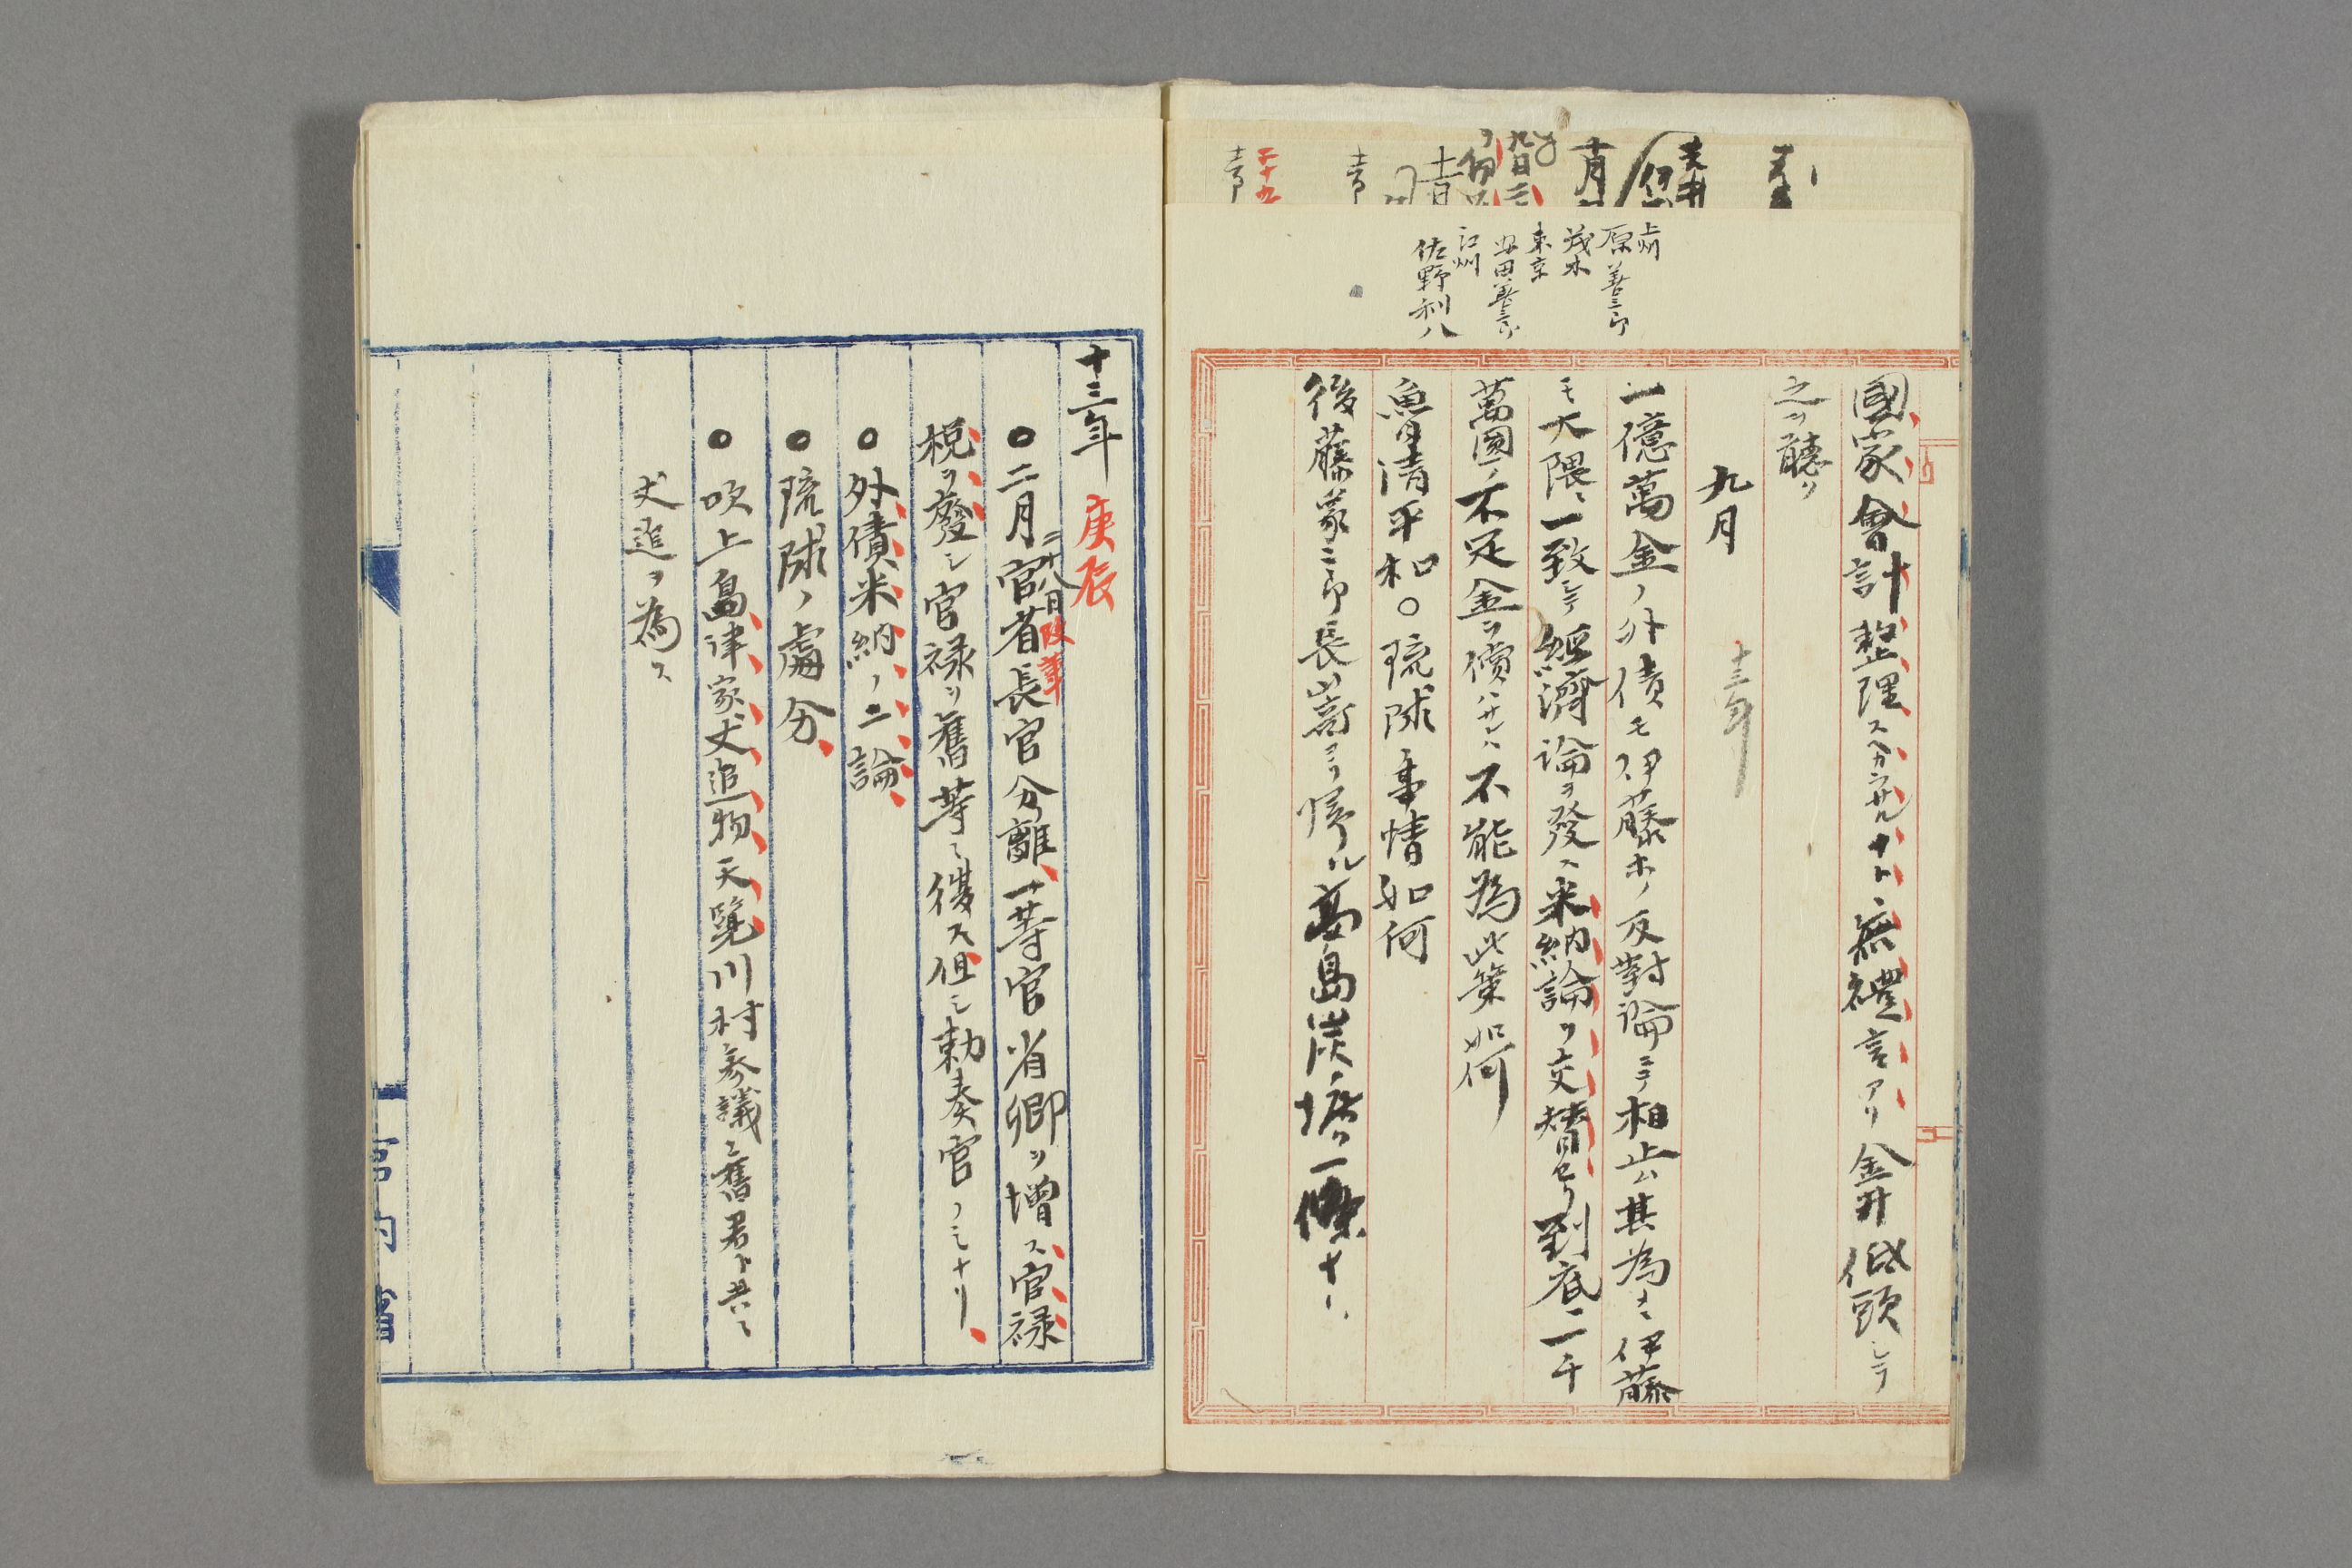 上州
原善三郎
茂木
東京
安田善三郎
江州
佐野利八
國家會計整理スヘカラサルナト、無禮言アリ金井低頭シテ
之ヲ聽ク
九月
十三年
一億萬金ノ外債モ伊藤ホノ反對論ニテ相止ム其為メニ伊藤
モ大隈ト一致シテ經濟論ヲ發ス米納論ヲ交替セリ到底二千
萬圓ノ不足金ヲ償ハサレハ不能為此策如何
魯清平和○琉球事情如何
後藤象二郎長崎ヨリ帰ル高島炭坑ノ一條ナト
十三年 庚辰
○二月官省長官分離、一等官省卿ヲ增ス官禄
二十八日改革
税ヲ廢シ官禄ヲ舊等ニ復ス但シ勅奏官ノミナリ
○外債米納ノ二論
○琉球ノ處分
○吹上島津家犬追物天覧川村参議モ舊君ト共ニ
犬追ヲ為ス
宮内省